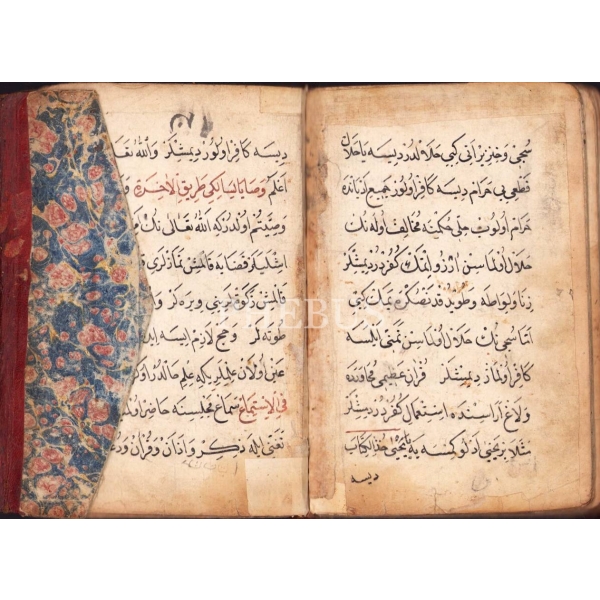 سجی و خنزیر اتی کبی حلال لدر دیسه یا حلال
قطعی یی حرام دیسه کافر اولور جمیع لذیانده
حرام اولوب حلی حکمته مخالف اوله نك
حلال اولماسن ارزو ایتمك کفردر دیمشلر
زنا و لواطه و طویدقدنصکره یمك کبی
اما نك حلال اولماسن تمنی ایلسه
کافر اولماز دیمشلر قران عظیمی
و لاغ اراسنده استعمال کفردر دیمشلر
مثلا بر یحیی ادلو کمسه یه یا یحیی خذ الکتاب
دیسه
دیسه کافر اولور دیمشلر والله تعا
اعلم وصایا لسالکی طریق الاخرة
وصیتم اولدر که الله تعالی نك
ایشلیه قضایه قالمش نمازلری
قالمش زکوة ویره لر
طوته لر و حج لازم ایسه
اولان علملر بیله علم حالدر
فی الاستماع سماع مجلسنه حاضر
تغنی ایله ذکر و اذان و قران
PHEBUS